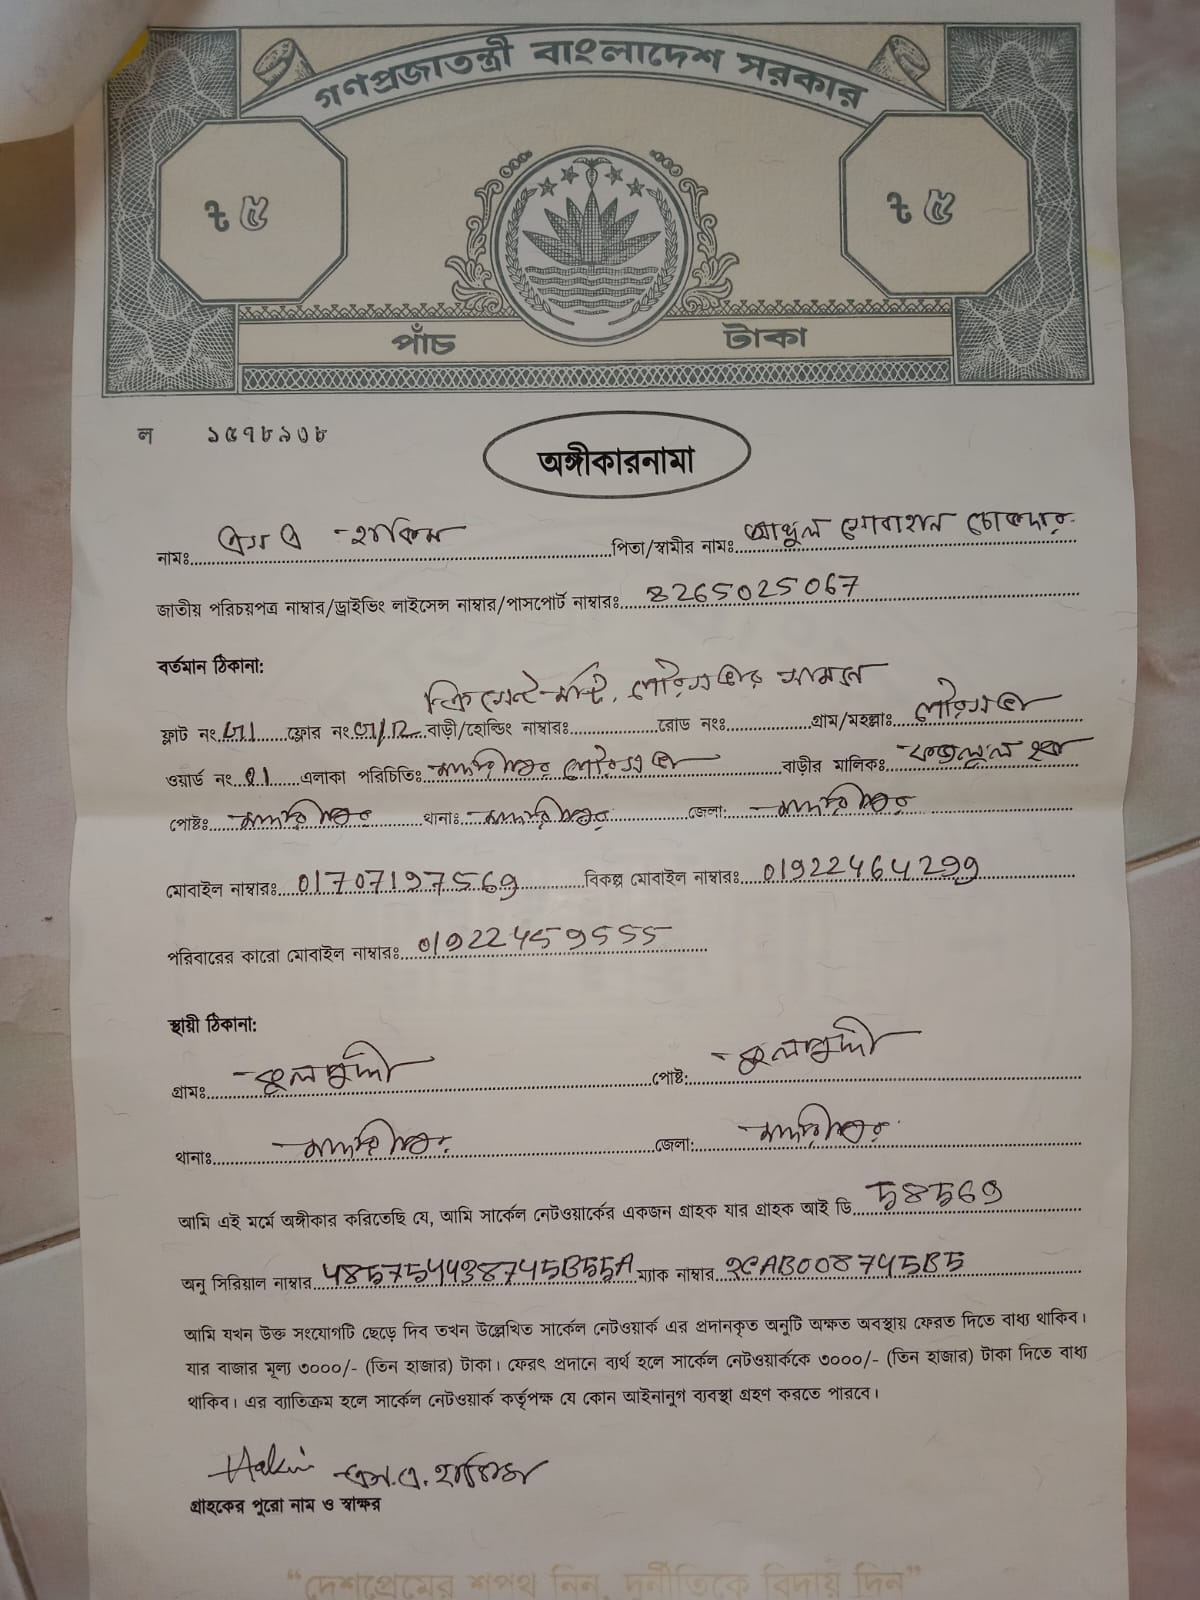 গণপ্রজাতন্ত্রী বাংলাদেশ সরকার
৳ ৫ ৳ ৫
পাঁচ টাকা
ল ১৫৭৮৯০৮
অঙ্গীকারনামা
নামঃ এস এ হাকিম পিতা/স্বামীর নামঃ
জাতীয় পরিচয়পত্র নাম্বার/ড্রাইভিং লাইসেন্স নাম্বার/পাসপোর্ট নাম্বারঃ 8265025067
বর্তমান ঠিকানা:
পৌরসভার সামনে
ফ্লাট নং ফ্লোর নং বাড়ী/হোল্ডিং নাম্বারঃ রোড নংঃ গ্রাম/মহল্লাঃ পৌরসভা
ওয়ার্ড নং এলাকা পরিচিতিঃ মাদারীপুর পৌরসভা বাড়ীর মালিকঃ ফজলুল হক
পোষ্টঃ মাদারীপুর থানাঃ মাদারীপুর জেলা: মাদারীপুর
মোবাইল নাম্বারঃ 01707197569 বিকল্প মোবাইল নাম্বারঃ 01922464299
পরিবারের কারো মোবাইল নাম্বারঃ 01922459555
স্থায়ী ঠিকানা:
গ্রামঃ পোষ্ট:
থানাঃ মাদারীপুর জেলা: মাদারীপুর
আমি এই মর্মে অঙ্গীকার করিতেছি যে, আমি সার্কেল নেটওয়ার্কের একজন গ্রাহক যার গ্রাহক আই ডি 58569
অনু সিরিয়াল নাম্বার 485754438745B55A ম্যাক নাম্বার
আমি যখন উক্ত সংযোগটি ছেড়ে দিব তখন উল্লেখিত সার্কেল নেটওয়ার্ক এর প্রদানকৃত অনুটি অক্ষত অবস্থায় ফেরত দিতে বাধ্য থাকিব।
যার বাজার মূল্য ৩০০০/- (তিন হাজার) টাকা। ফেরৎ প্রদানে ব্যর্থ হলে সার্কেল নেটওয়ার্ককে ৩০০০/- (তিন হাজার) টাকা দিতে বাধ্য
থাকিব। এর ব্যতিক্রম হলে সার্কেল নেটওয়ার্ক কর্তৃপক্ষ যে কোন আইনানুগ ব্যবস্থা গ্রহণ করতে পারবে।
Hakim এস.এ. হাকিম
গ্রাহকের পুরো নাম ও স্বাক্ষর
“দেশপ্রেমের শপথ নিন, দুর্নীতিকে বিদায় দিন”